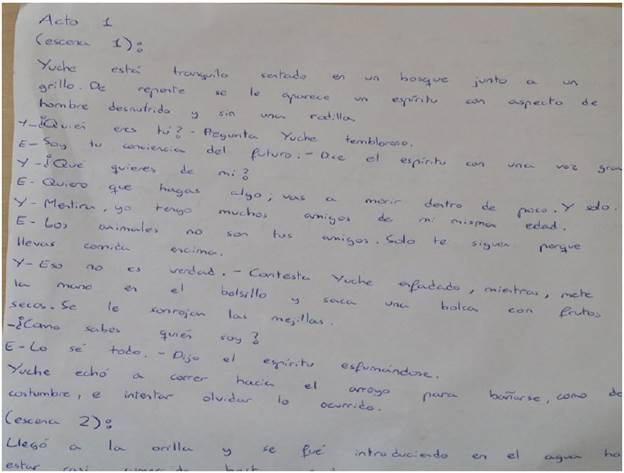 Acto 1
(escena 1):
Yuche está tranquilo sentado en un bosque junto a un
grillo. De repente se le aparece un espíritu con aspecto de
hombre desnutrido y sin una rodilla.
Y-¿Quién eres tú? - Pegunta Yuche tembloroso.
E- Soy tu conciencia del futuro. - Dice el espíritu con una voz
Y -¿Qué quieres de mi?
E- Quiero que hagas algo; vas a morir dentro de poco. Y solo.
Y- Mentira, yo tengo muchos amigos de mi misma edad.
E- Los animales no son tus amigos. Solo te siguen porque
llevas comida encima.
Y- Eso no es verdad. - Contesta Yuche enfadado, mientras, mete
la mano en el bolsillo y saca una bolsa con frutos
secos. Se le sonrojan las mejillas.
-¿Como sabes quién soy?
E- Lo sé todo. - Dijo el espíritu esfumándose.
Yuche echó a correr hacia el arroyo para bañarse, como de
costumbre, e intentar olvidar lo ocurrido.
(escena 2):
Llegó a la orilla y se fué introduciendo en el agua
estar casi